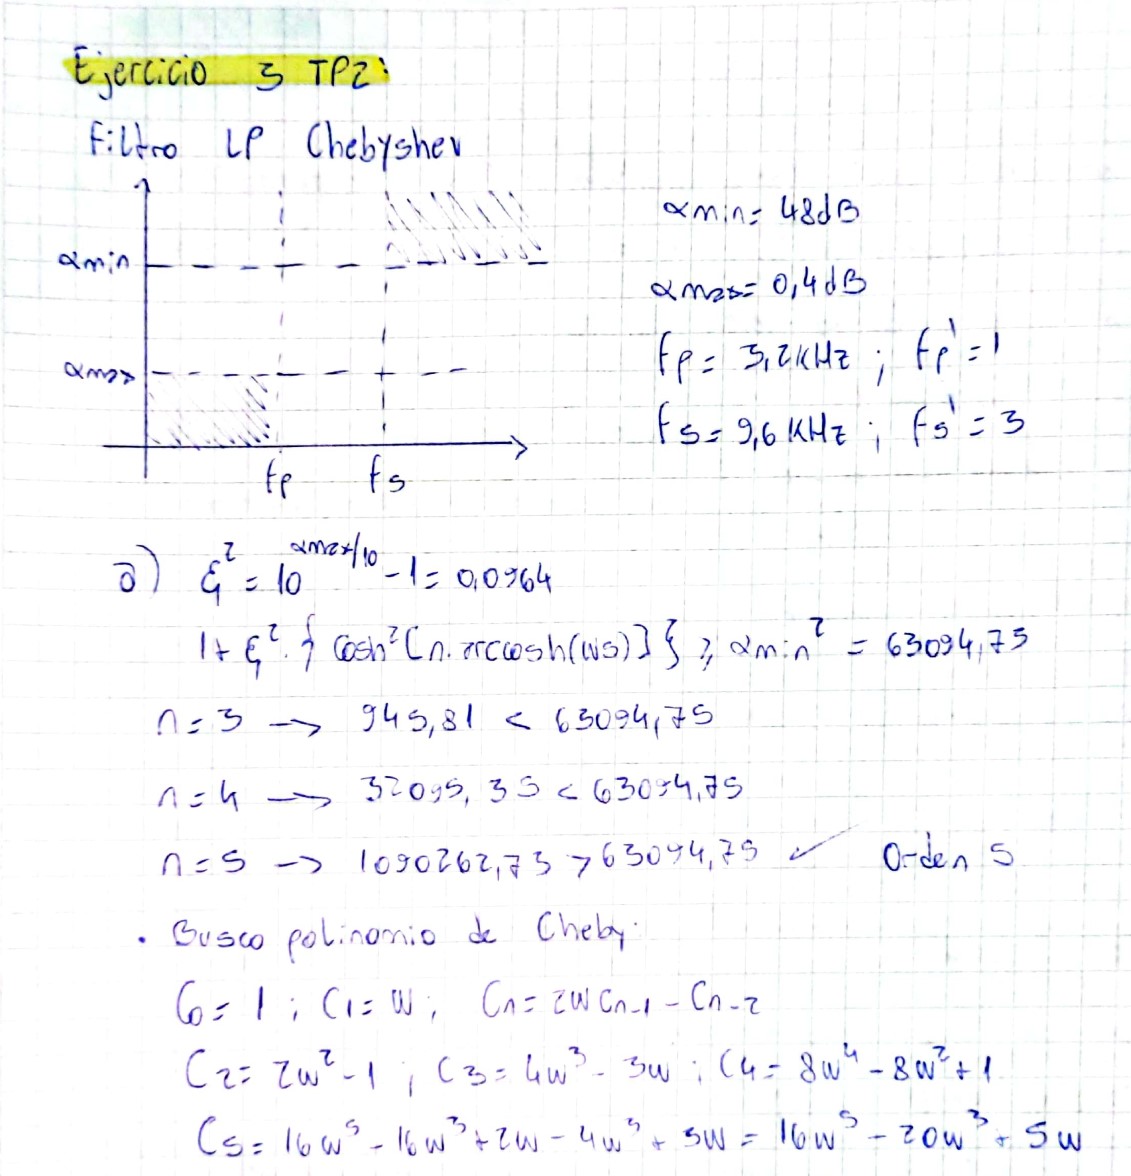 Ejercicio 3 TP2:
Filtro LP Chebyshev
αmin
αmax
fp fs
αmin= 48dB
αmax= 0,4dB
fp= 3,2KHz ; fp'=1
fs= 9,6 KHz ; fs'= 3
a) ξ² = 10^αmax/10 -1= 0,0964
1+ ξ². { cosh² [n. arccosh(ws)] } ≥ αmin² = 63094,75
n=3 → 945,81 < 63094,75
n=4 → 32095,35 < 63094,75
n=5 → 1090262,73 > 63094,75 ✓ Orden 5
• Busco polinomio de Cheby:
C0= 1 ; C1= W ; Cn= 2W Cn-1 - Cn-2
C2= 2w²-1 ; C3= 4w³- 3w ; C4= 8w⁴ - 8w² + 1
C5= 16w⁵ - 16w³ + 2w - 4w³ + 3w = 16w⁵ - 20w³ + 5w